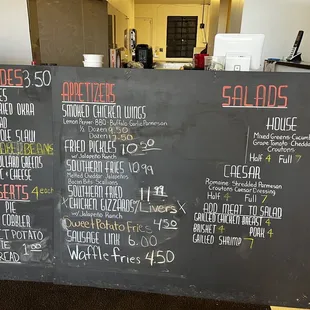 DES 3.50
ES
OKRA
SLAW
COLLARD GREENS
& CHEESE
SERTS 4 each
PIE
COBBLER
POTATO
APPETIZERS
SMOKED CHICKEN WINGS
Lemon Pepper BBQ Buffalo Garlic Parmesan
1/2 Dozen 9.50
Dozen
FRIED PICKLES 10.50
w/ Jalapeno Ranch
SOUTHERN FRIES 10.99
Melted Cheddar, Jalapeños
Bacon Bits, Scallions
SOUTHERN FRIED 11.99
CHICKEN GIZZARDS/Livers
w/ Jalapeno Ranch
Sweet Potato Fries 4.50
SAUSAGE LINK 6.00
Waffle Fries 4.50
SALADS
HOUSE
Mixed Greens Cucumber
Grape Tomato Cheddar
Croutons
Half 4 Full 7
CAESAR
Romaine Shredded Parmesan
Croutons Caesar Dressing
Half 4 Full 7
ADD MEAT TO SALAD
GRILLED CHICKEN BREAST 4
BRISKET 4 PORK 4
GRILLED SHRIMP 7